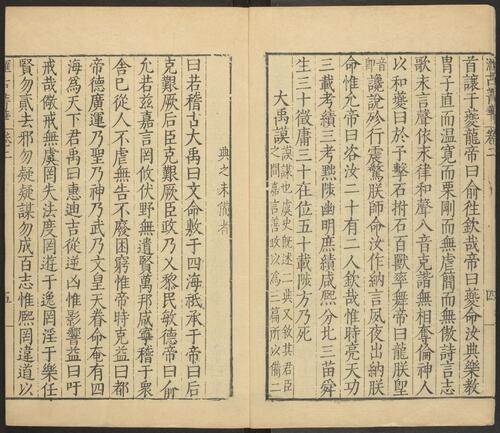 首讓于夔龍帝曰俞往欽哉帝曰夔命汝典樂教
胄子直而温寛而栗剛而無虐簡而無傲詩言志
歌永言聲依永律和聲八音克諧無相奪倫神人
以和夔曰於予擊石拊石百獸率舞帝曰龍朕堲
音即讒說殄行震驚朕師命汝作納言夙夜出納朕
命惟允帝曰咨汝二十有二人欽哉惟時亮天功
三載考績三考黜陟幽明庶績咸熙分北三苗舜
生三十徵庸三十在位五十載陟方乃死
大禹謨
謨謀也虞史旣述二典又敘其君臣
之間嘉言善政以為三篇所以備二
四
典之未備者
曰若稽古大禹曰文命敷于四海祗承于帝曰后
克艱厥后臣克艱厥臣政乃乂黎民敏德帝曰俞
允若兹嘉言罔攸伏野無遺賢萬邦咸寧稽于衆
舍已從人不虐無告不廢困窮惟帝時克益曰都
帝德廣運乃聖乃神乃武乃文皇天眷命奄有四
海為天下君禹曰惠迪吉從逆凶惟影響益曰吁
戒哉儆戒無虞罔失法度罔遊于逸罔淫于樂任
賢勿貳去邪勿疑疑謀勿成百志惟熙罔違道以
五